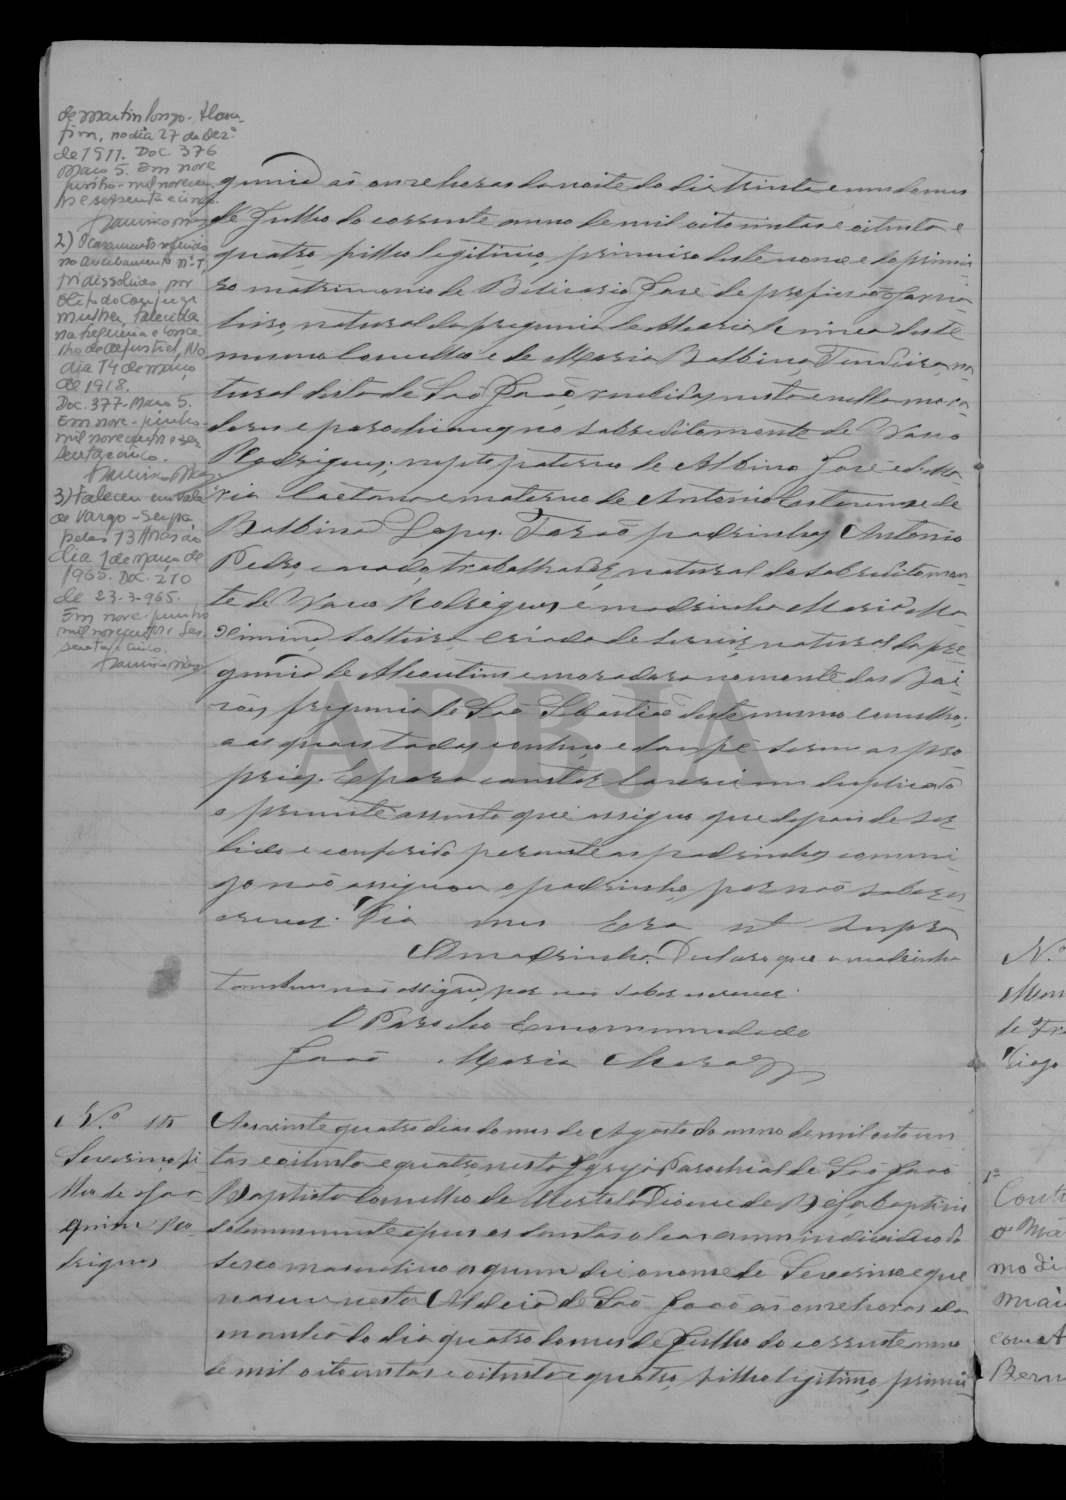 de Martin longo - Alcou-
tim, no dia 27 de Dez.º
de 1911. Doc. 376
Maço 5. Em nove
junho - mil novecen
tos e sessenta e cinco.
2) O casamento referido
no averbamento nº 1,
foi dissolvido, por
óbito do conjuge
mulher, falecida
na freguesia e conce-
lho de Aljustrel, No
dia 14 de março
de 1918.
Doc. 377 - Maço 5.
Em nove - junho -
mil novecentos e ses-
senta e cinco.
3) Faleceu em Vale
de Vargo - Serpa,
pelas 13 horas do
dia 1 de março de
1965. Doc. 210
de 23-3-965.
Em nove - junho
mil novecentos e ses
senta e cinco.
guesia ás onze horas da noite do dia trinta e um do mes
de Julho do corrente anno de mil oitocentos e oitenta e
quatro, filho legitimo, primeiro deste nome e do primei-
ro matrimonio de Belisario José de profissão
natural da freguesia de deste
mesmo Concelho e de Maria Balbina, Tendeira, na-
tural desta de São João, recebidos nesta e nella mora-
dores e parochianos no sobredito monte de Vasco
Rodrigues; neto paterno de Albino José e de Ma-
ria Caetana e materno de Antonio e de
Balbina Lopes. Forão padrinhos Antonio
Pedro, casado, trabalhador, natural do sobredito mon-
te de Vasco Rodrigues e madrinha Maria Ma-
ximina, solteira, criada de servir, natural da fre-
guesia de Alcoutim e moradora no monte dos Bai-
rões, freguesia de São Sebastião deste mesmo concelho;
aos quaes todos conheço e dou fé serem os pro-
prios. E para constar lavrei em duplicado
o presente assento que assigno que depois de ser
lido e conferido perante os padrinhos commi-
go não assignou o padrinho, por não saber es-
crever. Dia mes Era ut supra
A madrinha. Declaro que a madrinha
tambem não assigna, por não saber escrever.
O Parocho Encommendado
João Maria
N.º 18
Severino, fi
lho de Joa-
quim Ro-
drigues
Aos vinte quatro dias do mes de Agosto do anno de mil oitocen
tos e oitenta e quatro, nesta Igreja Parochial de São João
Baptista Concelho de Mertola Diocese de Beja baptisei
solemnemente e pus os santos oleos a um individuo do
sexo masculino a quem dei o nome de Severino e que
nasceu nesta Aldeia de São João ás onze horas da
manhã do dia quatro do mes de Julho do corrente anno
de mil oitocentos e oitenta e quatro, filho legitimo, primei
N.º
de Fra
Diogo
o Ma
modi
mais
const
Bern
ADBJA